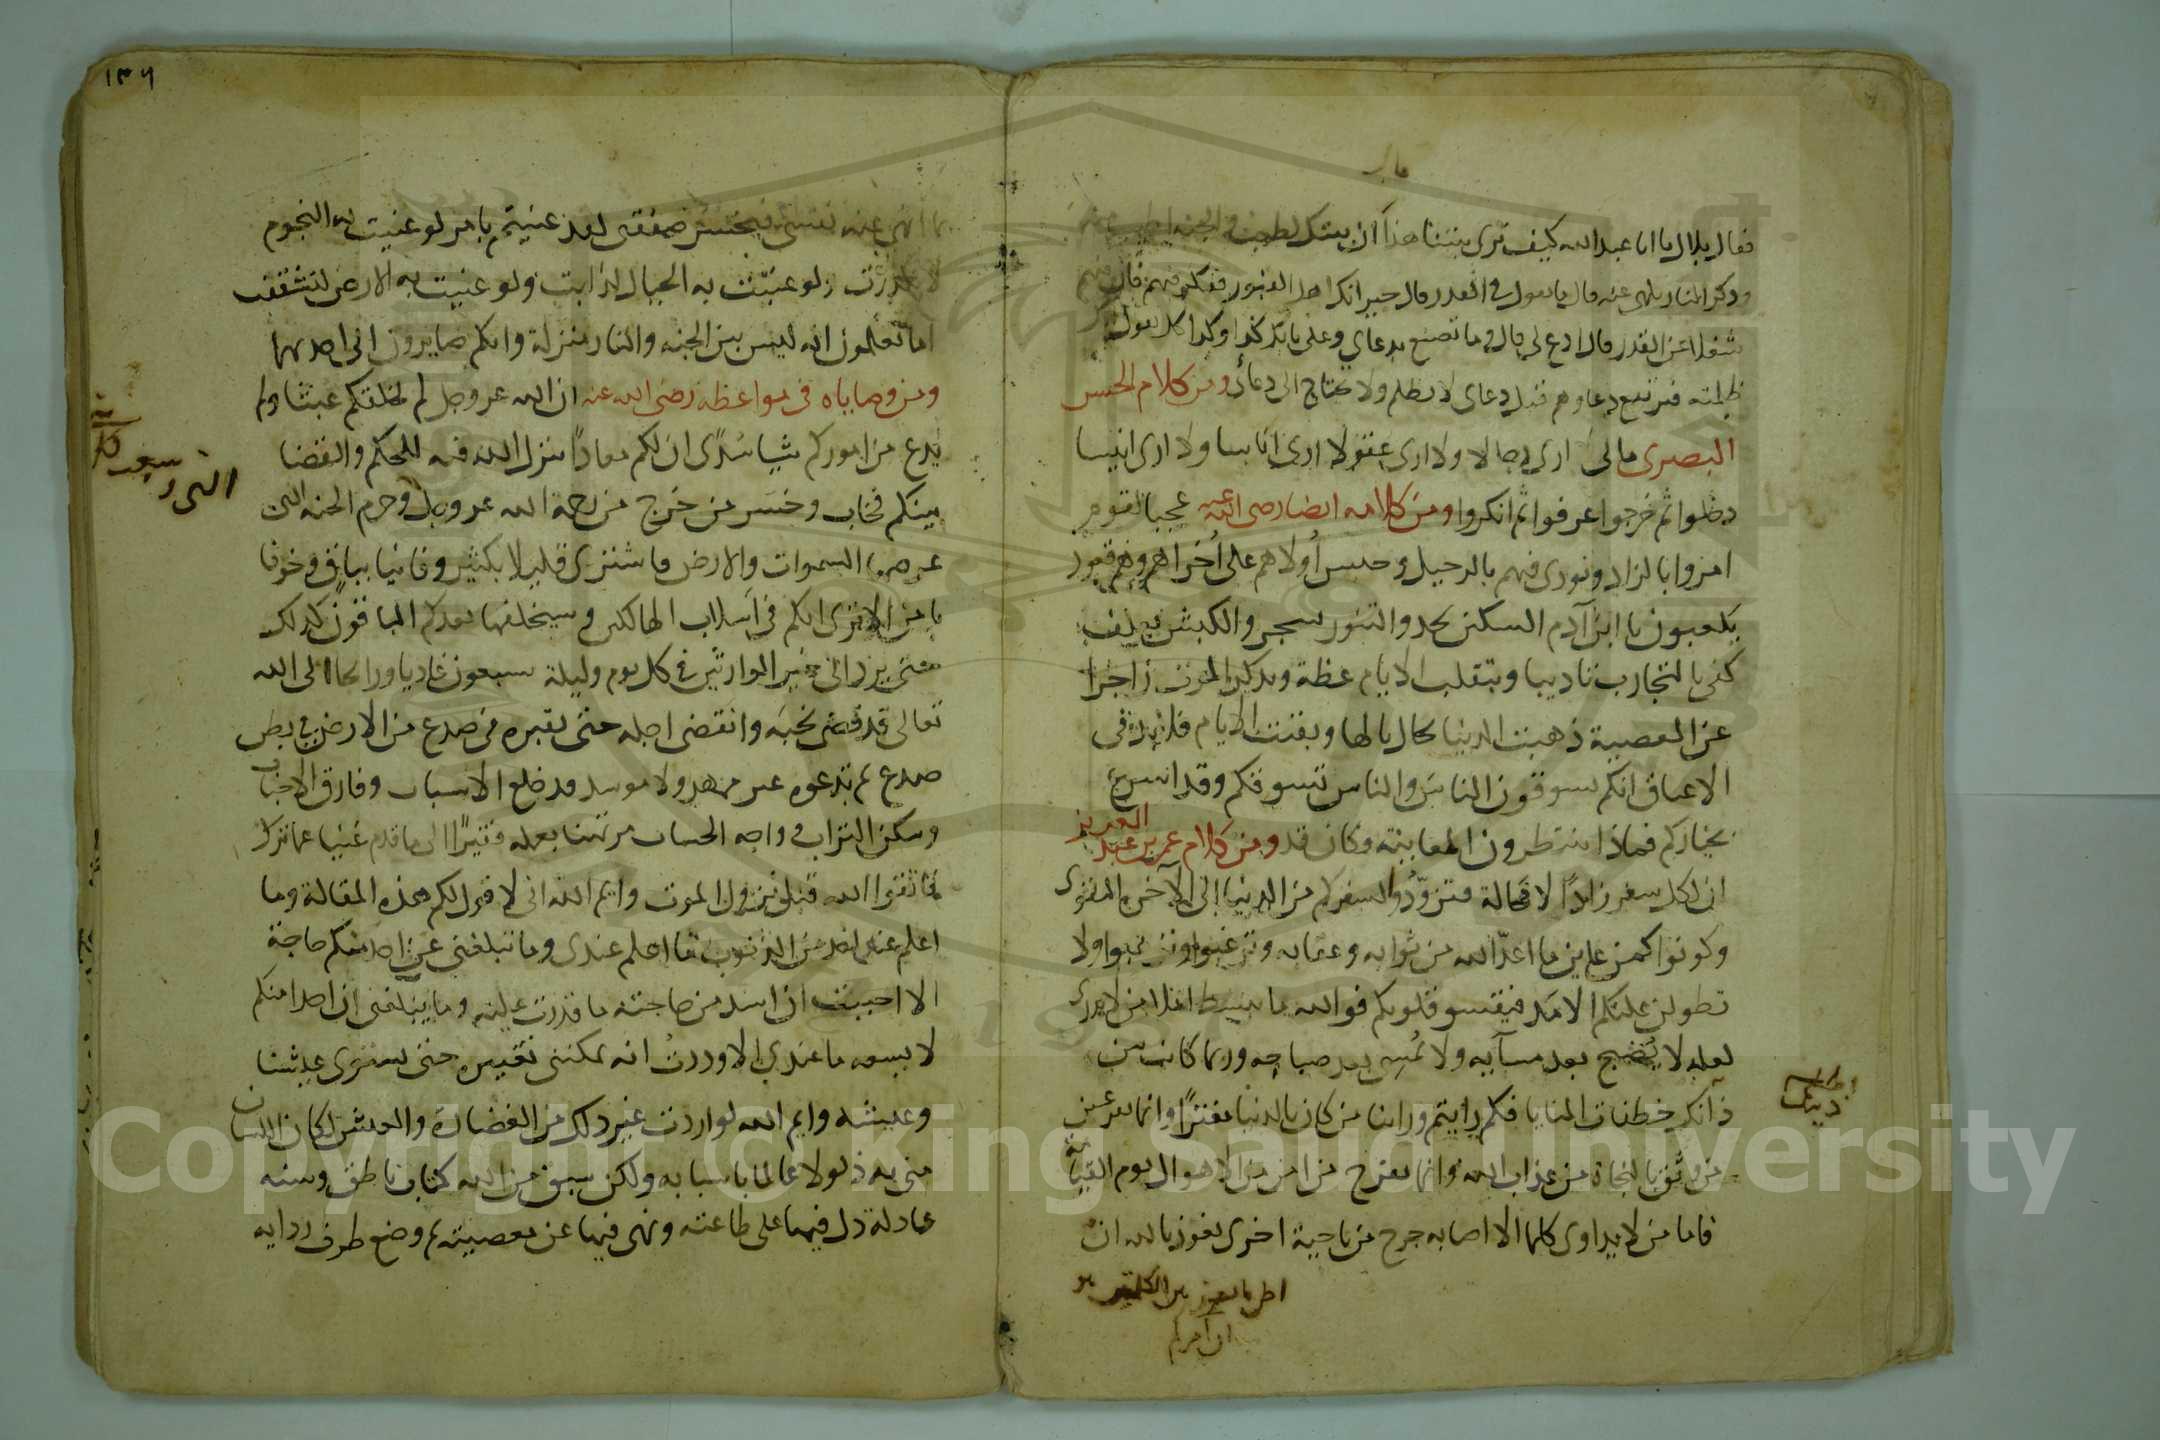 فقال بلال يا ابا عبد الله كيف ترى بيتنا هذا ان بيتك لطيب والجنه اطيب منه
وذكر النار يلهى عنه قال ما تقول فى القدر قال جيرانك اهل القبور ففكر فيهم فان فيهم
شغلا عن القدر قال ادع لى قال وما تصنع بدعاي وعلى بابك كذا وكذا كل يقول
ظلمته فيرتفع دعاوهم قبل دعاى لا تظلم ولا تحتاج الى دعاى ومن كلام الحسن
البصرى مالى ارى رجالا ولا ارى عقولا ارى اناسا ولا ارى انيسا
دخلوا ثم خرجوا عرفوا ثم انكروا ومن كلامه ايضا رضى الله عنه عجبا لقوم
امروا بالزاد ونودى فيهم بالرحيل وحبس اولاهم على اخراهم وهم قعود
يلعبون يا ابن آدم السكين تحد والتنور يسجر والكبش يعلف
كفى بالتجارب تاديبا وبتقلب الايام عظة وبذكر الموت زاجرا
عن المعصية ذهبت الدنيا بحال بالها وبقيت الايام قلائد فى
الاعناق انكم تسوقون الناس والناس تسوقكم وقد اسرع
بخياركم فماذا تنتظرون المعاينة وكان قد ومن كلام عمر بن عبد
العزيز
ان لكل سفر زادا لا محالة فتزودوا لسفركم من الدنيا الى الآخرة التقوى
وكونوا كمن عاين ما اعد الله من ثوابه وعقابه وترغبوا وترهبوا ولا
تطولن عليكم الامد فيقسو قلوبكم فوالله ما بسط املا من لا يدرى
لعله لا يصبح بعد مسآيه ولا يمسى بعد صباحه وربما كانت بين
ذلك خطفات المنايا فكم رايتم وراينا من كان بالدنيا مغترا وانما تقر عين
من وثق بالنجاة من عذاب الله وانما يفرح من امن من الاهوال يوم القيامة
فاما من لا يداوى كلما الا اصابه جرح من ناحية اخرى نعوذ بالله ان
ان آمركم
١٣٦
بما انهى عنه نفسى فيخسر صفقتى لقد عنيتم بامر لو عنيت به النجوم
لانكدرت ولو عنيت به الجبال لذابت ولو عنيت به الارض لتشققت
اما تعلمون انه ليس بين الجنه والنار منزلة وانكم صايرون الى احديهما
ومن وصاياه فى مواعظه رضى الله عنه ان الله عز وجل لم يخلقكم عبثا ولم
يدع من اموركم شيا سدى ان لكم معادا ينزل الله فيه للحكم والقضا
بينكم فخاب وخسر من خرج من رحمة الله عز وجل وحرم الجنه التى
عرضها السموات والارض فاشترى قليلا بكثير وفانيا بباق وخوفا
بامن الا ترى انكم فى اسلاب الهالكين وسيخلفها بعدكم الباقون كذلك
حتى يرد الى خير الوارثين فى كل يوم وليلة تشيعون غاديا ورايحا الى الله
تعالى قد قضى نحبه وانقضى اجله حتى يقبره فى صدع من الارض فى بطن
صدع ثم تدعوه غير ممهد ولا موسد قد خلع الاسباب وفارق الاحباب
وسكن التراب وواجه الحساب مرتهنا بعمله فقيرا الى ما قدم غنيا عما ترك
فاتقوا الله قبل نزول الموت وايم الله انى لاقول لكم هذه المقالة وما
اعلم عند احد من الذنوب ما اعلم عندى وما تبلغنى عن احد منكم حاجة
الا احببت ان اسد من حاجته ما قدرت عليه وما يبلغنى ان احدا منكم
لا يسعه ما عندى الا وددت انه يمكننى تغييره حتى يستوى عيشنا
وعيشه وايم الله لو اردت غير ذلك من الغضارة والعيش لكان اللسان
منى به ذلولا عالما باسبابه ولكن سبق من الله كتاب ناطق وسنه
عادلة دل فيها على طاعته ونهى فيها عن معصيته ثم وضع طرف ردايه
Copyright © King Saud University
1957